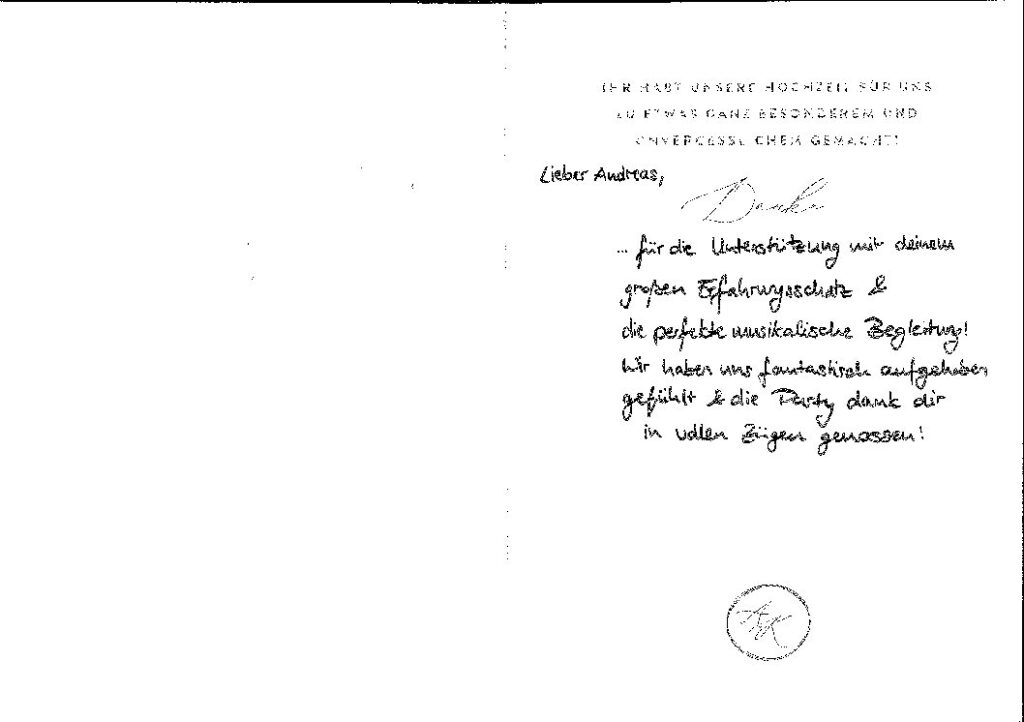 IHR HABT UNSERE HOCHZEIT FÜR UNS
ZU ETWAS GANZ BESONDEREM UND
UNVERGESSLICHEM GEMACHT!
Lieber Andreas,
Danke
... für die Unterstützung mit deinem
großen Erfahrungsschatz &
die perfekte musikalische Begleitung!
Wir haben uns fantastisch aufgehoben
gefühlt & die Party dank dir
in vollen Zügen genossen!
A&K